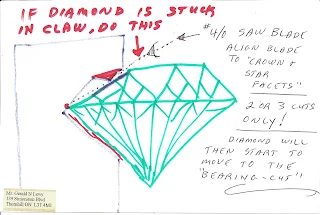 IF DIAMOND IS STUCK
IN CLAW, DO THIS
#4/0 SAW BLADE
ALIGN BLADE
TO "CROWN &
STAR
FACETS"
2 OR 3 CUTS
ONLY!
DIAMOND WILL
THEN START TO
MOVE TO THE
"BEARING-CUT"
Mr. Gerald N Lewy